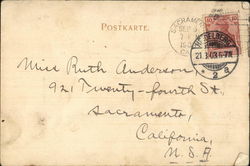 POSTKARTE.
SACRAMENTO
HEIDELBERG
21.8.03.6-7N.
* 2 a
Miss Ruth Anderson,
921 Twenty-fourth St,
Sacramento,
California,
U.S.A